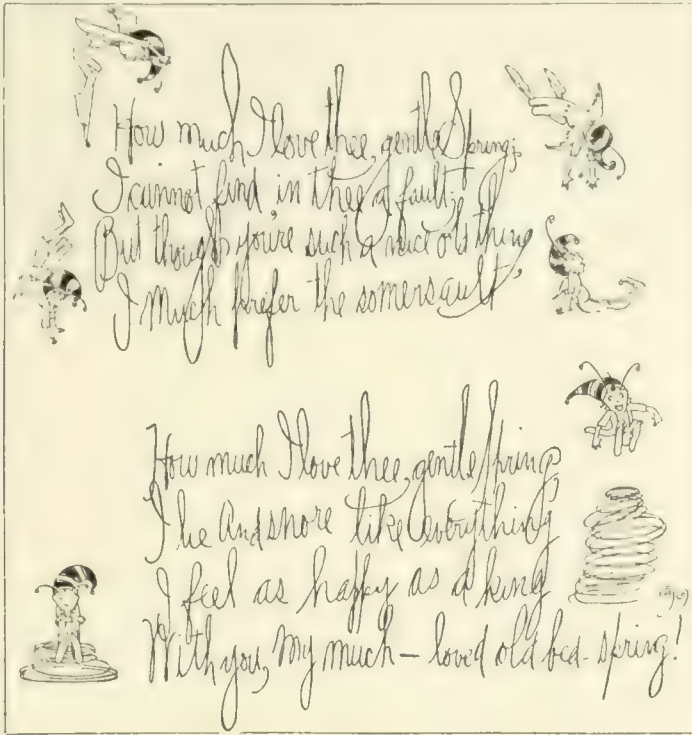 How much I love thee, gentle Spring;
I cannot find in thee a fault;
But though you're such a nice old thing
I much prefer the somersault
How much I love thee, gentle Spring
I lie And snore like everything
I feel as happy as a king
With you, My much - loved old bed-spring!